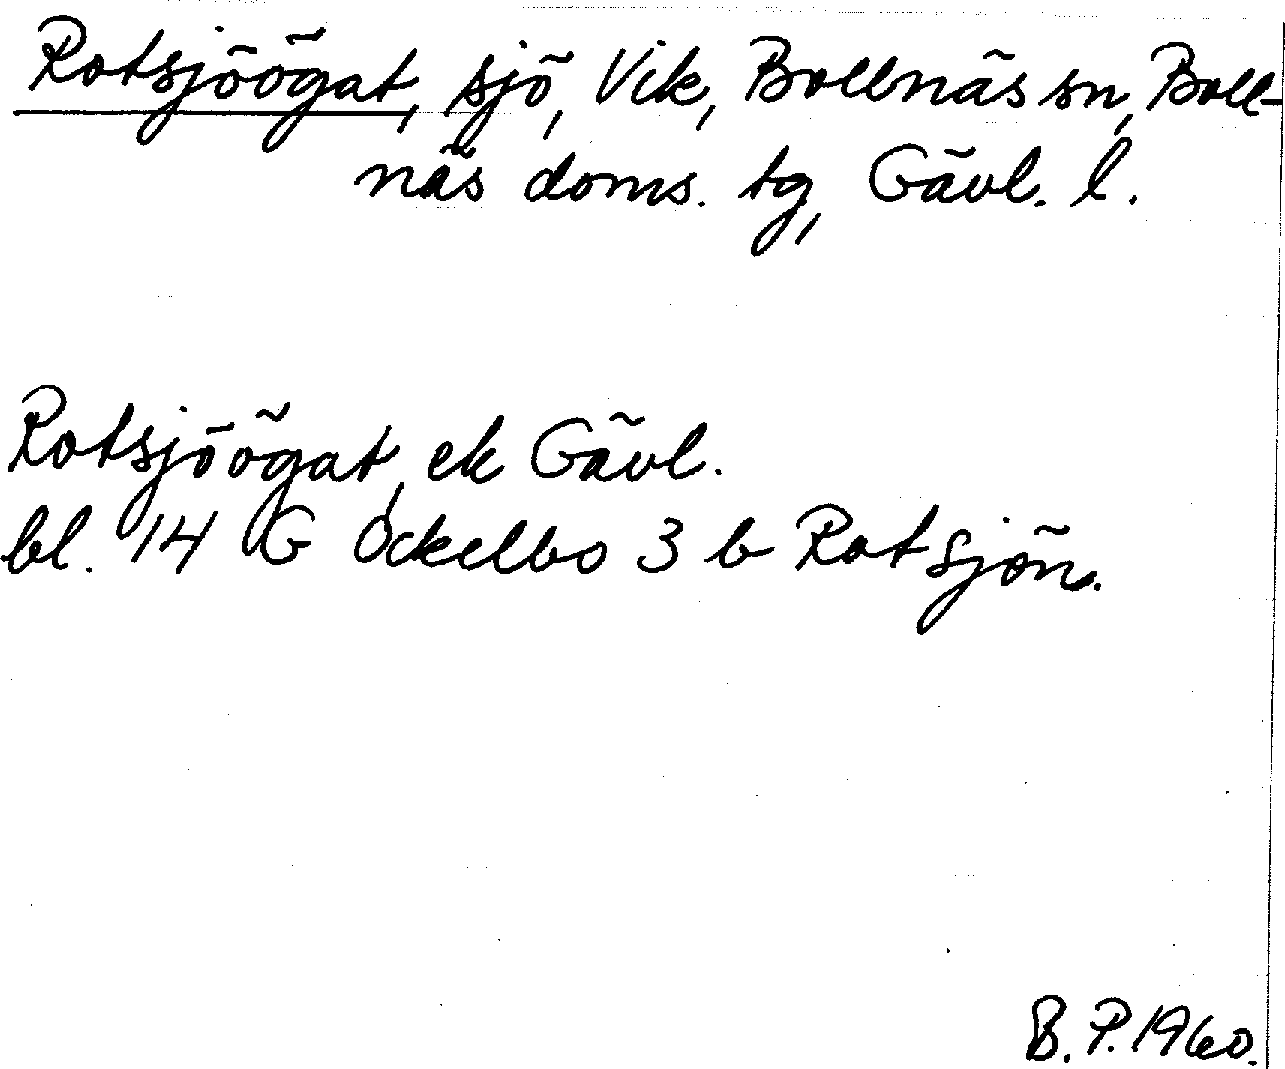 Rotsjöögat, sjö, Vik, Bollnäs sn, Boll-
näs doms. tg, Gävl. l.
Rotsjöögat, ek Gävl.
bl. 14 G Ockelbo 3 b Rotsjön.
B. P. 1960.